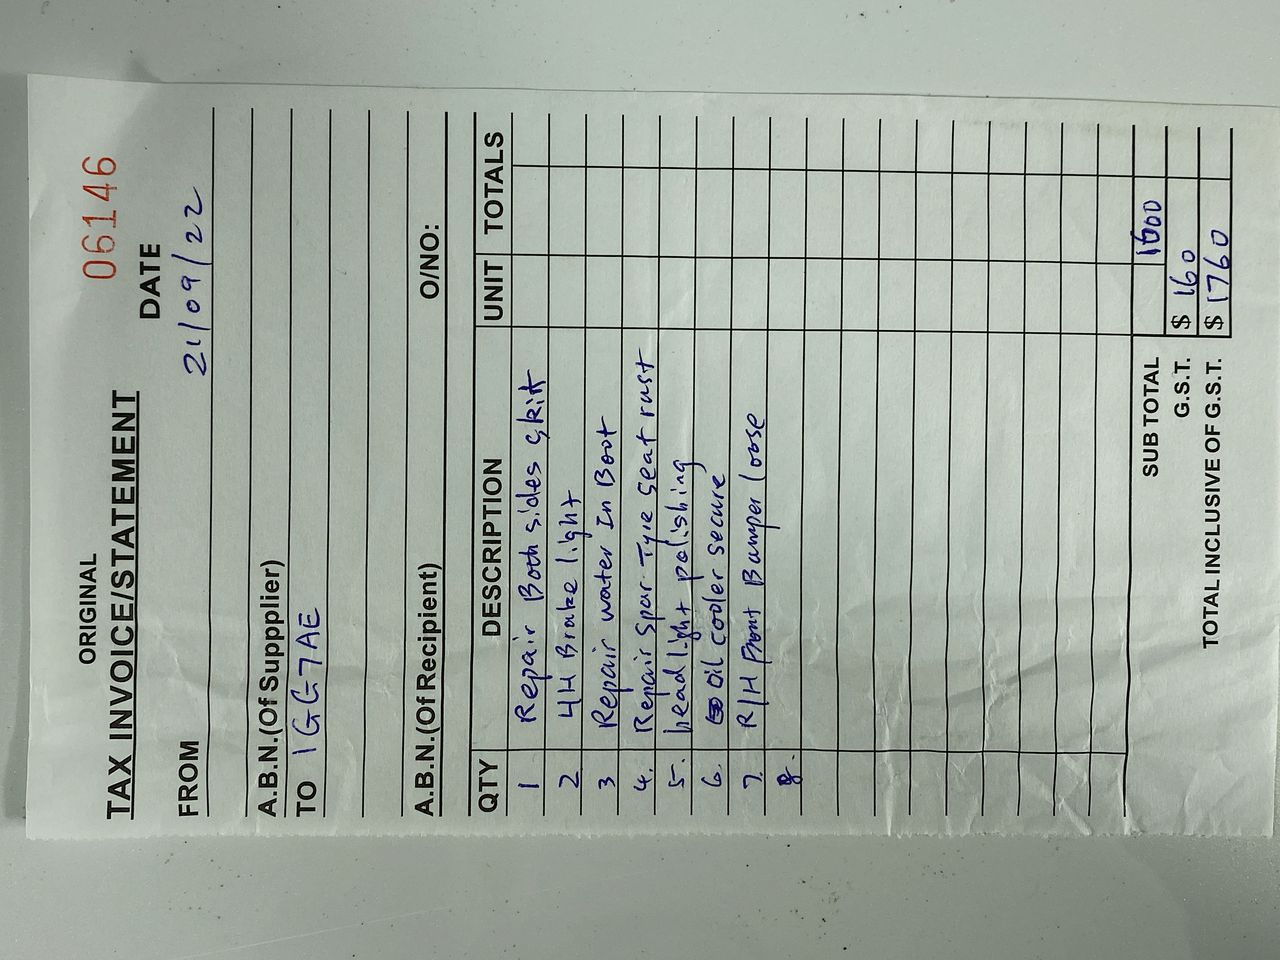 ORIGINAL
TAX INVOICE/STATEMENT 06146
DATE
FROM 21/09/22
A.B.N.(Of Suppplier)
TO 1GG7AE
A.B.N.(Of Recipient) O/NO:
QTY DESCRIPTION UNIT TOTALS
1 Repair Both sides skit
2 4H Brake light
3 Repair water In Boot
4. Repair Spar Tyre seat rust
5. head light polishing
6. oil cooler secure
7. R/H Front Bamper loose
8.
SUB TOTAL 1600
G.S.T. $ 160
TOTAL INCLUSIVE OF G.S.T. $ 1760